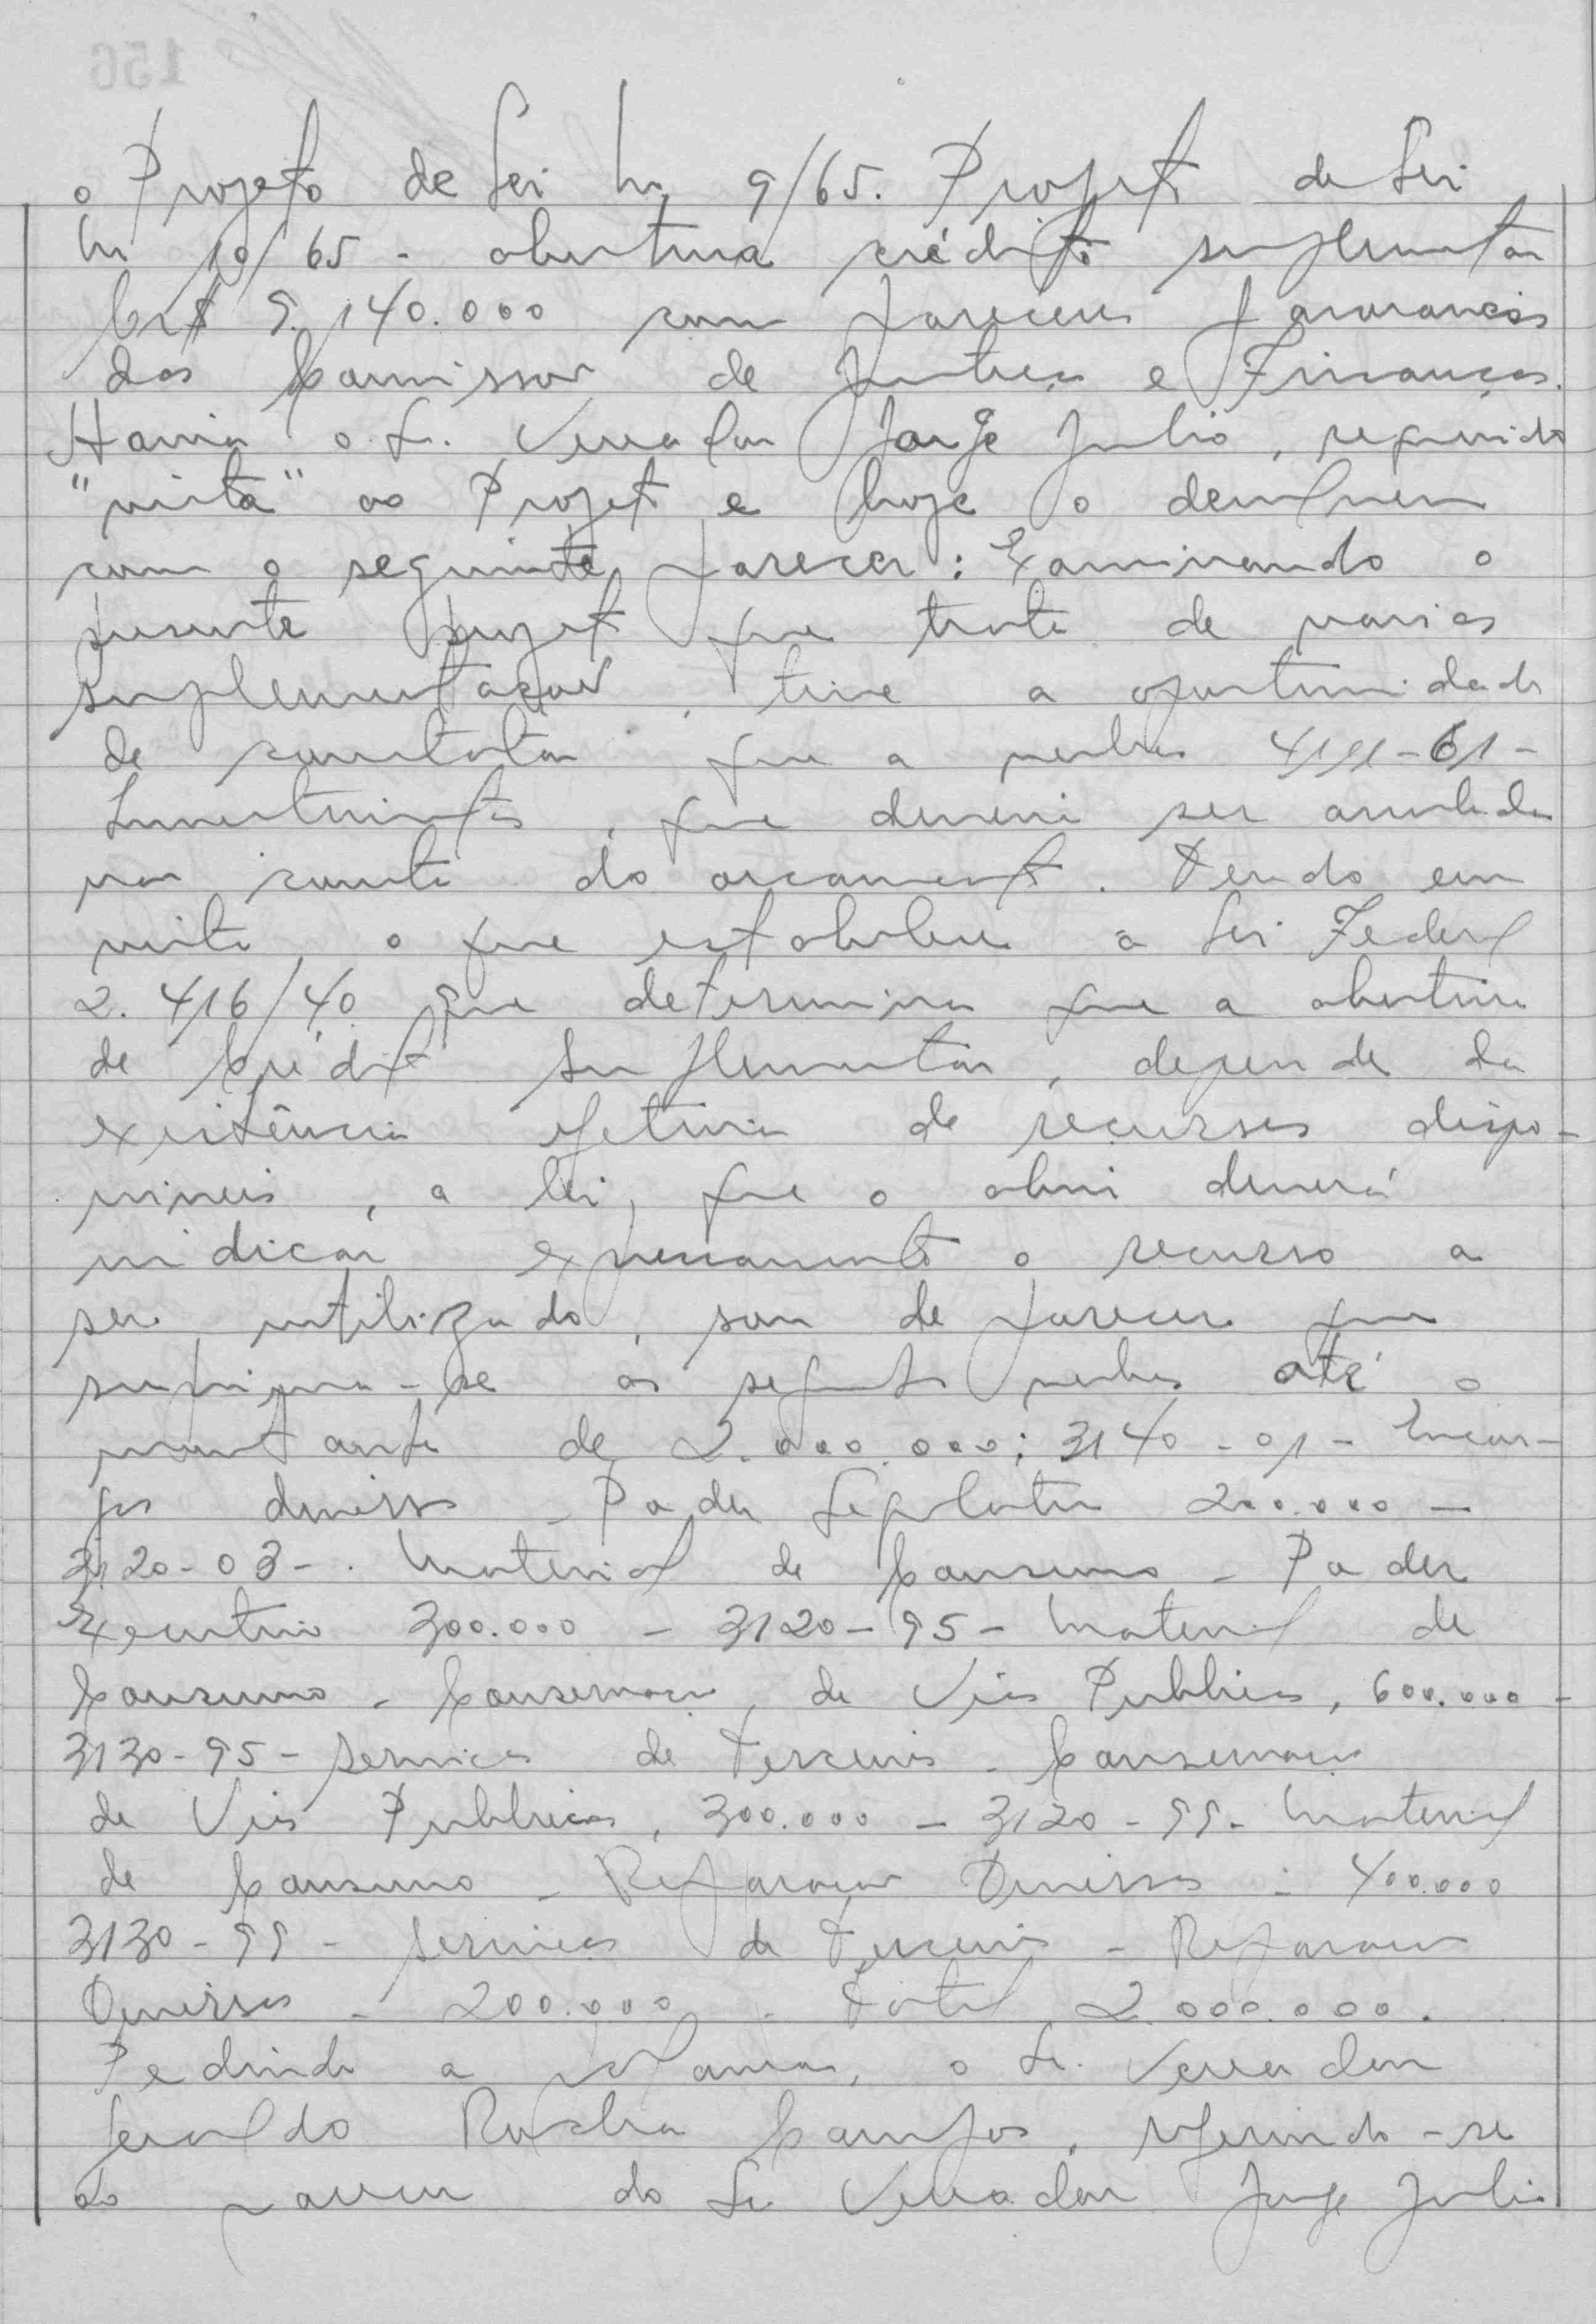 o Projeto de Lei nº 9/65. Projeto de Lei
nº 10/65 - abertura crédito suplementar
Cr$ 9.140.000 com parecer favoraveis
das Comissões de Justiça e Finanças.
Havia o Sr. Vereador Jorge Julio, requerido
"vista" ao Projeto e hoje o devolveu
com o seguinte parecer: Examinando o
presente projeto que trata de varias
suplementações, tive a oportunidade
de constatar que a verba 4111-61-
Investimentos, que deverá ser anulada
não consta do orçamento. Tendo em
vista o que estabelece a Lei Federal
2.416/40 que determina que a abertura
de Crédito Suplementar, depende da
existência efetiva de recursos dispo-
niveis, a lei, que o abrir deverá
indicar expressamente o recurso a
ser utilizado, sou de parecer que
suprima-se as seguintes verbas até o
montante de 2.000.000: 3140-01- Encar-
gos diversos - Poder Legislativo 200.000 -
3120-03- Material de Consumo - Poder
Executivo 300.000 - 3120-95- Material de
Consumo - Conservação de Vias Publicas, 600.000 -
3130-95- Serviços de Terceiros - Conservação
de Vias Publicas, 300.000 - 3120-99- Material
de Consumo - Reparações Diversas - 400.000
3130-99- Serviços de Terceiros - Reparações
Diversas - 200.000 - Total 2.000.000.
Pedindo a palavra, o Sr. Vereador
Geraldo Rocha Campos, referindo-se
ao parecer do Sr. Vereador Jorge Julio
156